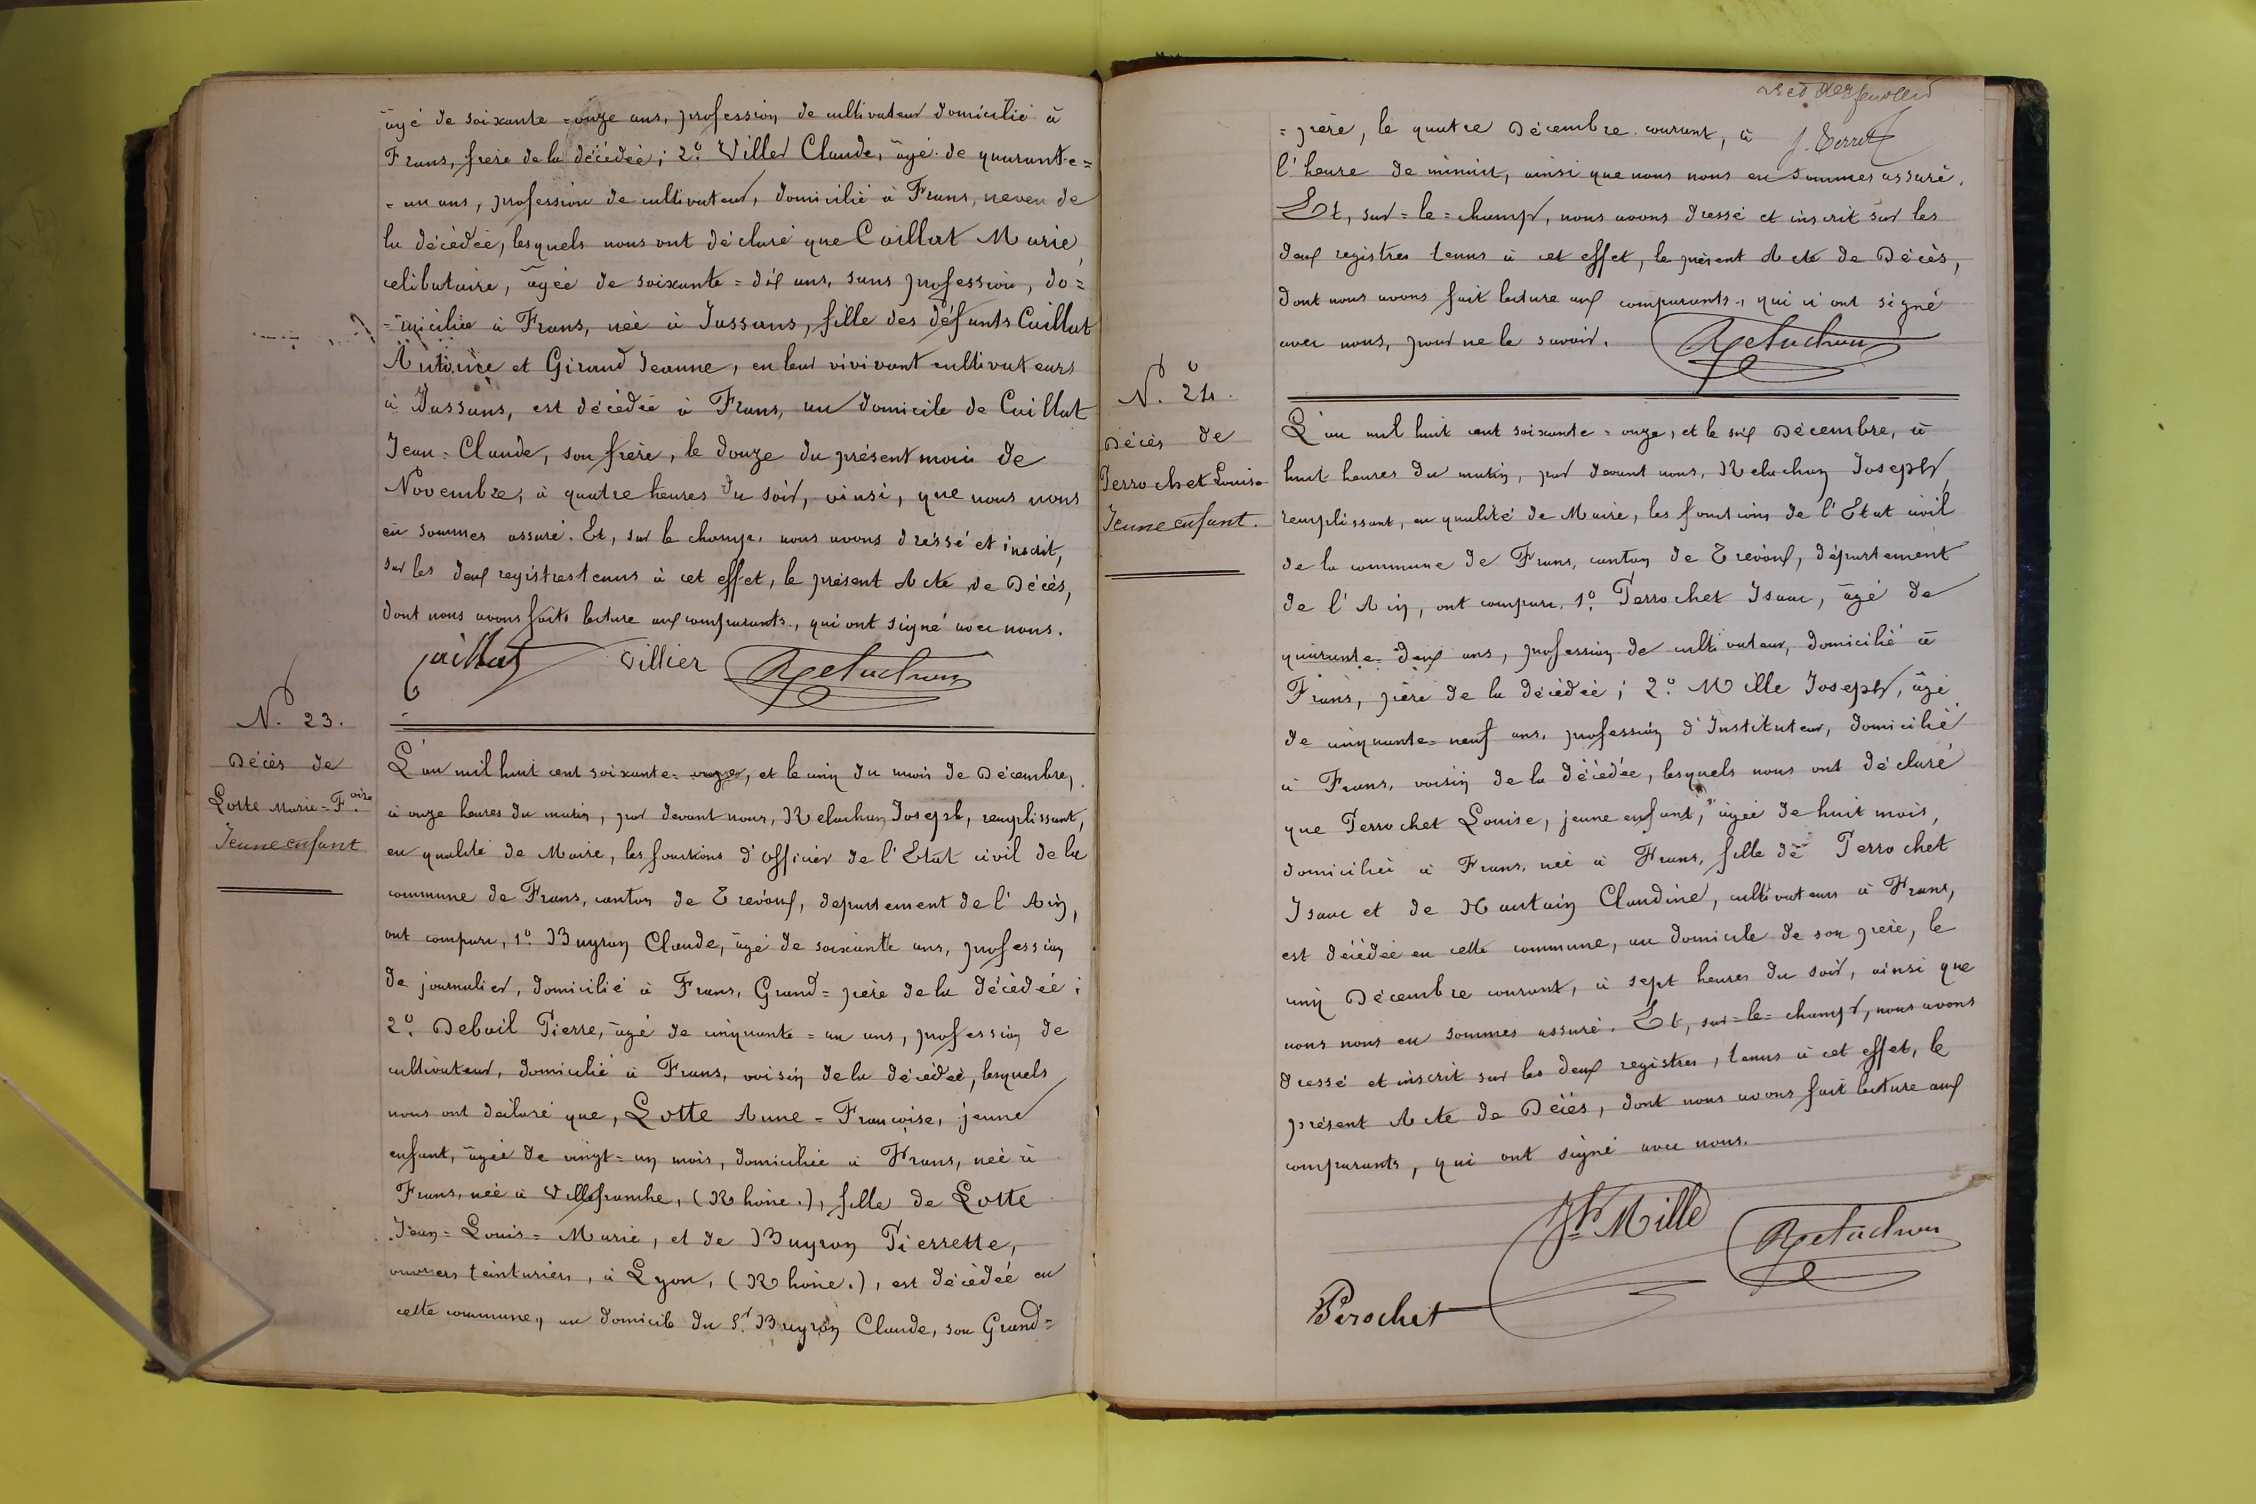 âgé de soixante=onze ans, profession de cultivateur domicilié à
Frans, frère de la décédée; 2º Viller Claude, âgé de quarante=
=un ans, profession de cultivateur, domicilié à Frans, neveu de
la décédée, lesquels nous ont déclaré que Caillat Marie,
célibataire, âgée de soixante=dix ans, sans profession, do=
=miciliée à Frans, née à Jassans, fille des défunts Caillat
Antoine et Giraud Jeanne, en leur vivivant cultivateurs
à Jassans, est décédée à Frans, au domicile de Caillat
Jean=Claude, son frère, le douze du présent mois de
Novembre, à quatre heures du soir, ainsi, que nous nous
en sommes assuré. Et, sur le champ, nous avons dressé et inscrit,
sur les deux registres tenus à cet effet, le présent Acte de Décès,
dont nous avons faits lecture aux comparants, qui ont signé avec nous.
Caillat Villier Relachon
Nº 23.
Décès de
Lotte Marie=Foise
Jeune enfant
L'an mil huit cent soixante=onze, et le cinq du mois de Décembre,
à onze heures du matin, par devant nous, Relachon Joseph, remplissant,
en qualité de Maire, les fonctions d'officier de l'Etat civil de la
commune de Frans, canton de Trévoux, département de l'Ain,
ont comparu, 1º Buyron Claude, âgé de soixante ans, profession
de journalier, domicilié à Frans, Grand=père de la décédée;
2º Debail Pierre, âgé de cinquante=un ans, profession de
cultivateur, domicilié à Frans, voisin de la décédée, lesquels
nous ont déclaré que, Lotte Anne=Françoise, jeune
enfant, âgée de vingt=un mois, domiciliée à Frans, née à
Frans, née à Villefranche, (Rhône.), fille de Lotte
Jean=Louis=Marie, et de Buyron Pierrette,
ouvriers teinturiers, à Lyon, (Rhône.), est décédée en
cette commune, au domicile du Sr Buyron Claude, son Grand=
=père, le quatre Décembre courant, à
J. Terret
l'heure de minuit, ainsi que nous nous en sommes assuré.
Et, sur=le=champ, nous avons dressé et inscrit sur les
deux registres tenus à cet effet, le présent Acte de Décès,
dont nous avons fait lecture aux comparants, qui n'ont signé
avec nous, pour ne le savoir. Relachon
Nº 24.
Décès de
Perrochet Louise
Jeune enfant.
L'an mil huit cent soixante=onze, et le six Décembre, à
huit heures du matin, par devant nous, Relachon Joseph,
remplissant, en qualité de Maire, les fonctions de l'Etat civil
de la commune de Frans, canton de Trévoux, département
de l'Ain, ont comparu, 1º Perrochet Isaac, âgé de
quarante=deux ans, profession de cultivateur, domicilié à
Frans, père de la décédée; 2º Mille Joseph, âgé
de cinquante=neuf ans, profession d'Instituteur, domicilié
à Frans, voisin de la décédée, lesquels nous ont déclaré
que Perrochet Louise, jeune enfant, âgée de huit mois,
domiciliée à Frans, née à Frans, fille de Perrochet
Isaac et de Nantain Claudine, cultivateurs à Frans,
est décédée en cette commune, au domicile de son père, le
cinq Décembre courant, à sept heures du soir, ainsi que
nous nous en sommes assuré. Et, sur=le=champ, nous avons
dressé et inscrit sur les deux registres, tenus à cet effet, le
présent Acte de Décès, dont nous avons fait lecture aux
comparants, qui ont signé avec nous.
Jh Mille Relachon
Perochet